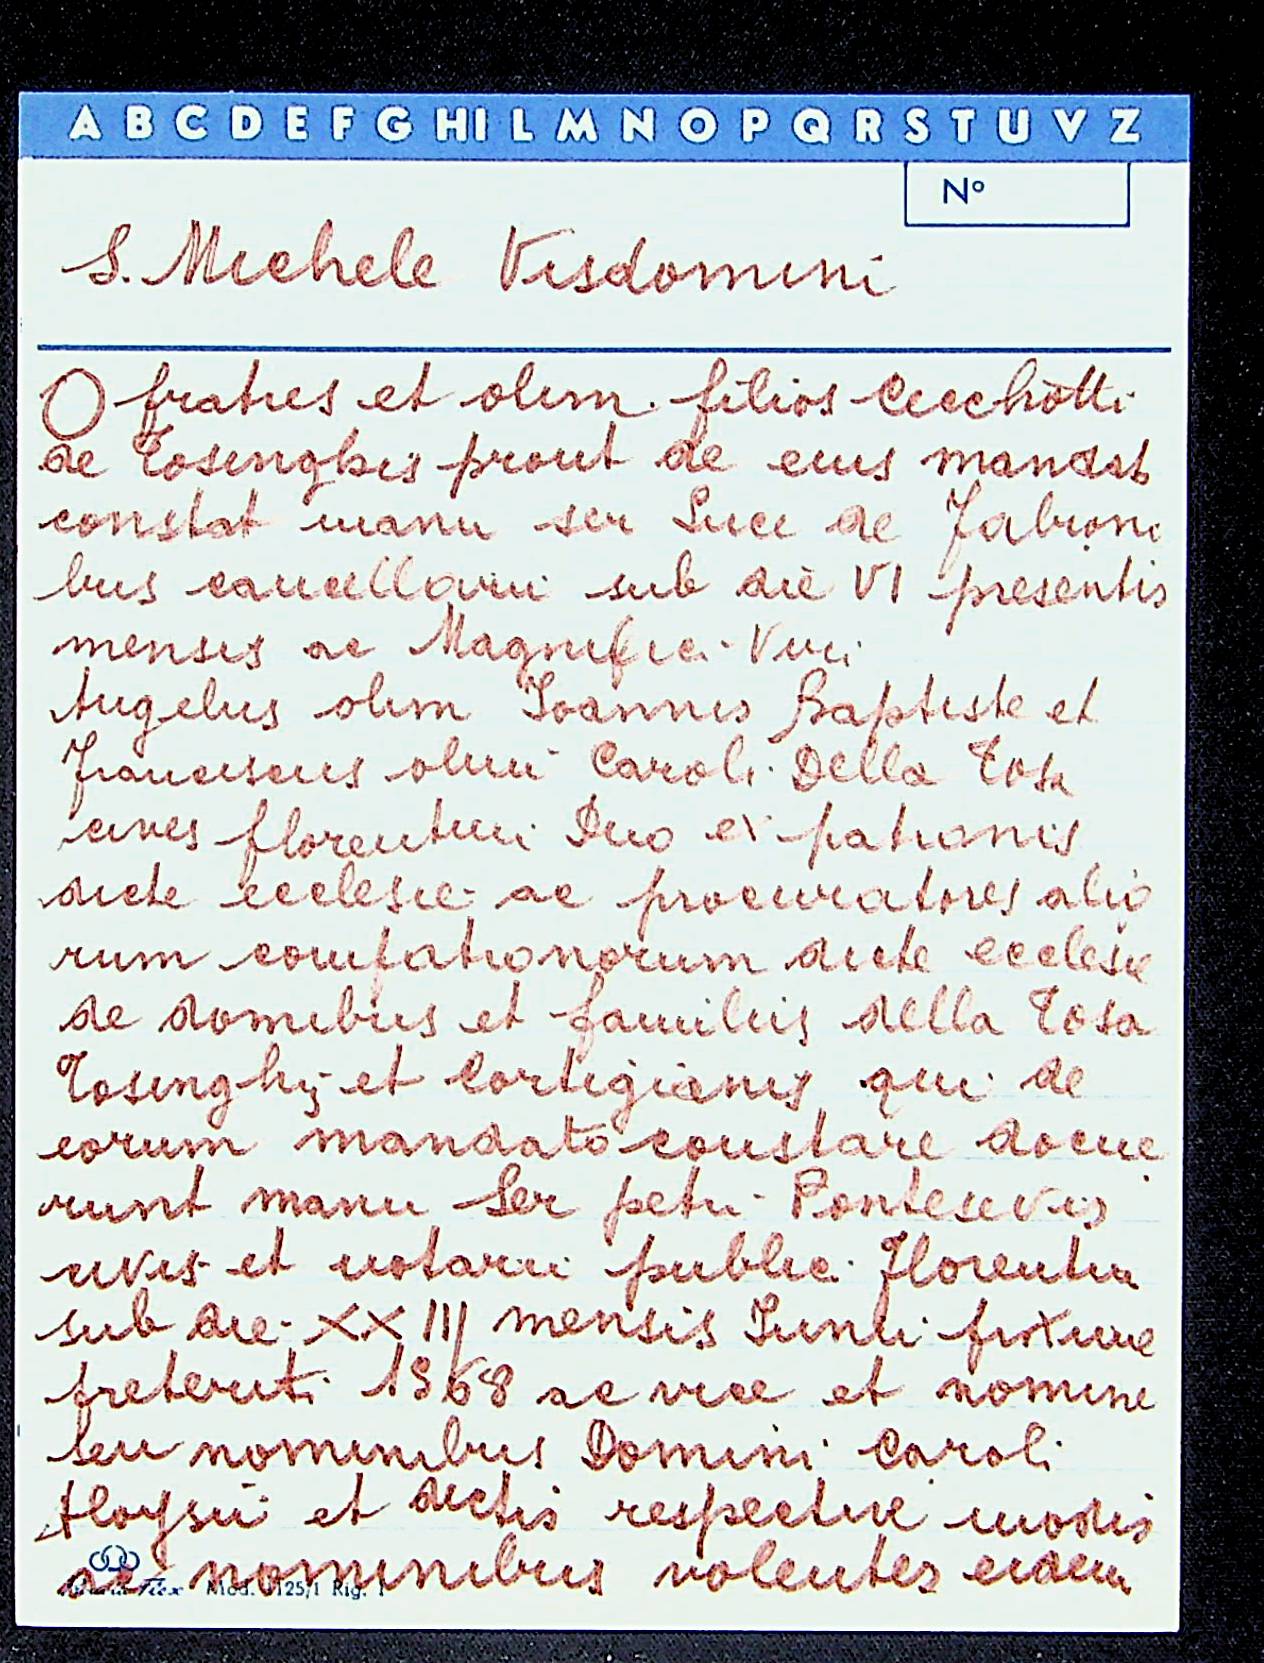 A B C D E F G H I L M N O P Q R S T U V Z
Nº
S. Michele Visdomini
O fratres et olim filios Cecchotti
de Tosinghis prout de eius mandat
constat manu ser Luce de Fabroni
bus cancellarii sub die VI presentis
mensis ac Magnifici Viri
Angelus olim Ioannis Baptiste et
Franciscus olim Caroli Della Tosa
cives florentini Duo ex patronis
dicte ecclesie ac procuratores alio
rum compatronorum dicte ecclesie
de domibus et familiis della Tosa
Tosinghis et Cortigianis qui de
eorum mandato constare docue
runt manu Ser petri
civis et notarii public Florentin
sub die XXIII mensis Iunii proxime
preteriti 1568 ac vice et nomine
seu nominibus Domini Caroli
Aloysii et dictis respective modis
ac nominibus volentes eidem
Mod. 1125/1 Rig. 1